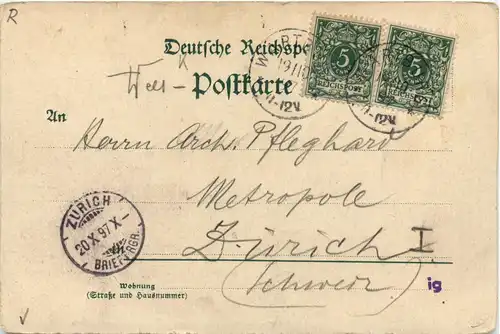 R
Deutsche Reichspo
Postkarte
5
REICHSPOST
5
REICHSPOST
11-12V.
An
Herrn Arch. Pfleghard
Metropole
Zürich I
(Schweiz)
ig
ZÜRICH
20 X 97 X-
BRIEFTRGR.
Wohnung
(Straße und Hausnummer)